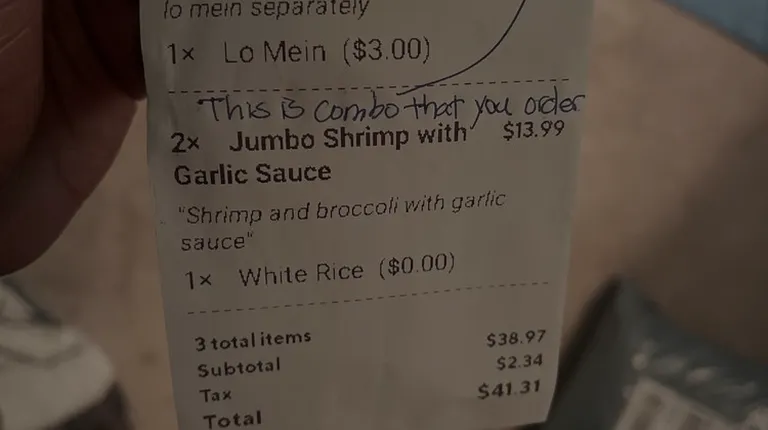 lo mein separately
1× Lo Mein ($3.00)
This is combo that you order
2× Jumbo Shrimp with $13.99
Garlic Sauce
"Shrimp and broccoli with garlic
sauce"
1× White Rice ($0.00)
3 total items
Subtotal $38.97
Tax $2.34
Total $41.31